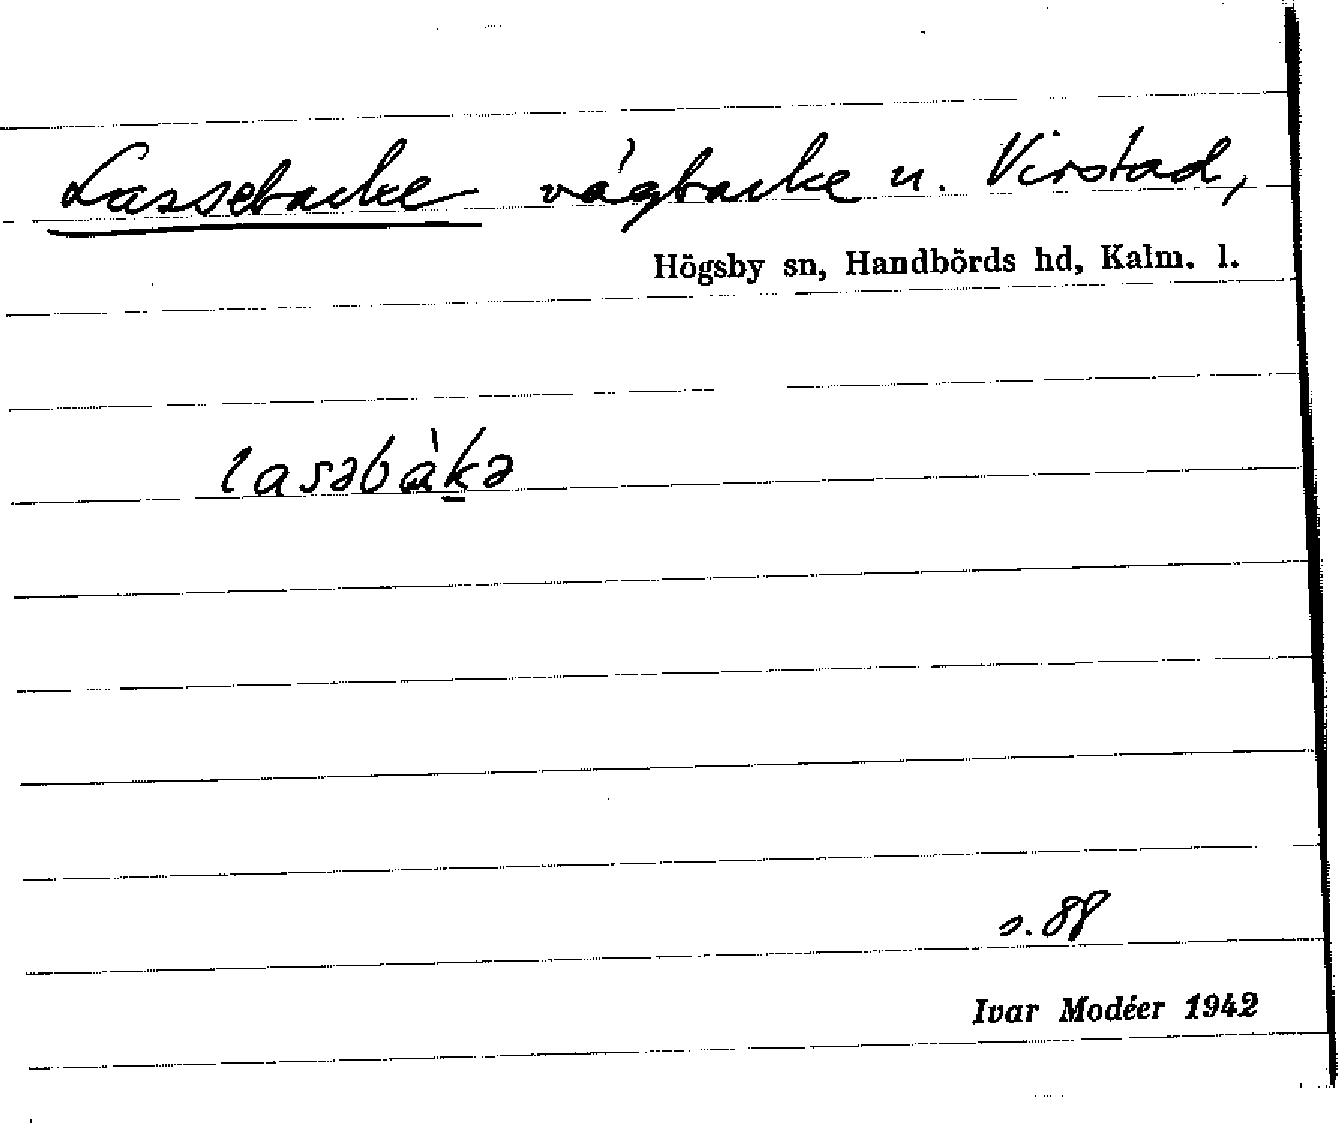 Lassebacke vägbacke u. Virstad,
Högsby sn, Handbörds hd, Kalm. l.
lasəbàkə
s. 88
Ivar Modéer 1942